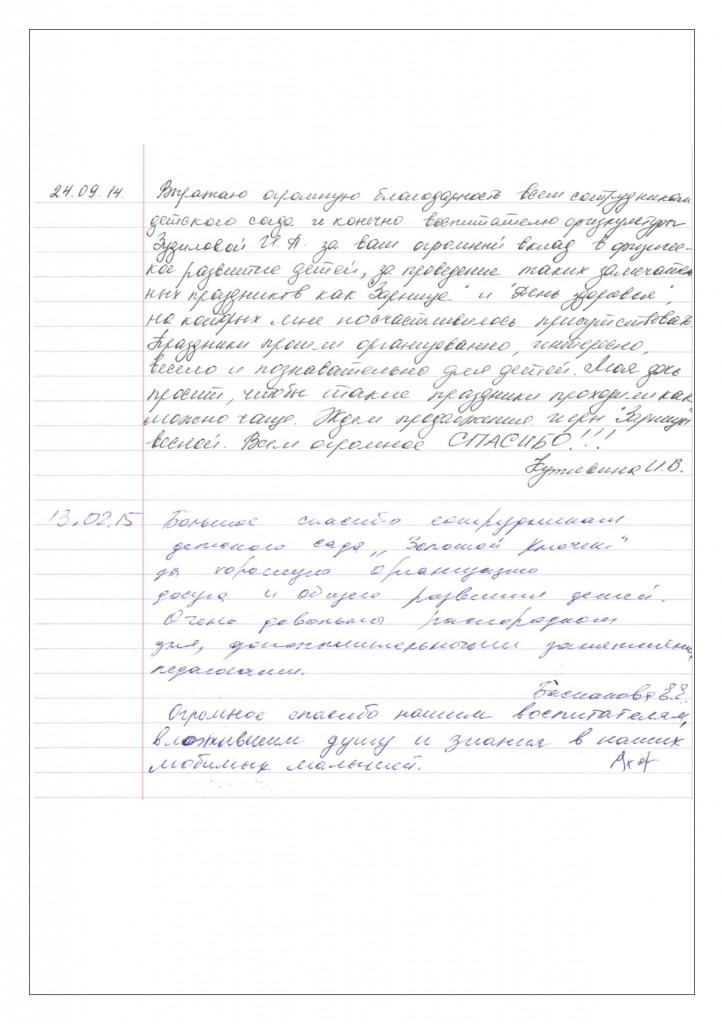 24.09.14. Выражаю огромную благодарность всем сотрудникам
детского сада и конечно воспитателю физкультуры
Зузиловой И.А. за ваш огромный вклад в физичес-
кое развитие детей, за проведение таких замечатель
ных праздников как "Зарница" и "День здоровья",
на которых мне посчастливилось присутствовать.
Праздники прошли организованно, интересно,
весело и познавательно для детей. Моя дочь
просит, чтобы такие праздники проходили как
можно чаще. Ждем продолжения игры "Зарницы"
весной. Всем огромное СПАСИБО!!!
И.В.
13.02.15 Большое спасибо сотрудникам
детского сада „Золотой ключик"
за хорошую организацию
досуга и общего развития детей.
Очень довольны распорядком
дня, дополнительными занятиями,
педагогами.
Огромное спасибо нашим воспитателям,
вложившим душу и знания в наших
любимых малышей.